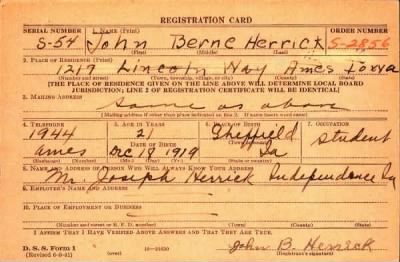 REGISTRATION CARD
SERIAL NUMBER 1. NAME (Print) ORDER NUMBER
S-54 John Berne Herrick S-2856
(First) (Middle) (Last)
2. PLACE OF RESIDENCE (Print)
1217 Lincoln Way Ames Iowa
(Number and street) (Town, township, village, or city) (County) (State)
[THE PLACE OF RESIDENCE GIVEN ON THE LINE ABOVE WILL DETERMINE LOCAL BOARD
JURISDICTION; LINE 2 OF REGISTRATION CERTIFICATE WILL BE IDENTICAL]
3. MAILING ADDRESS
Same as above
[Mailing address if other than place indicated on line 2. If same insert word same]
4. TELEPHONE 5. AGE IN YEARS 6. PLACE OF BIRTH 7. OCCUPATION
1944 21 Sheffield Student
DATE OF BIRTH
Ames Dec 18 1919 Ia
8. NAME AND ADDRESS OF PERSON WHO WILL ALWAYS KNOW YOUR ADDRESS
Mr. Joseph Herrick Independence Ia
9. EMPLOYER'S NAME AND ADDRESS
10. PLACE OF EMPLOYMENT OR BUSINESS
(Number and street or R. F. D. number) (Town) (County) (State)
I AFFIRM THAT I HAVE VERIFIED ABOVE ANSWERS AND THAT THEY ARE TRUE.
D. S. S. Form 1 John B. Herrick
(Registrant's signature)